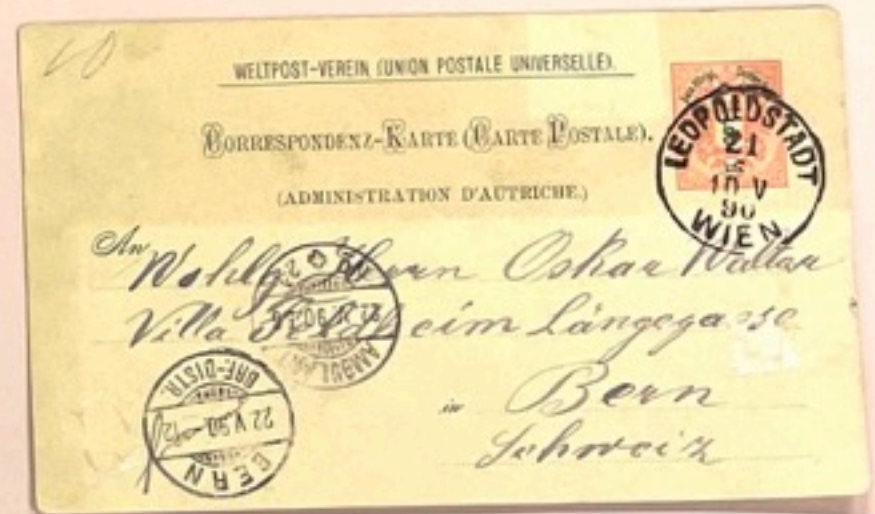 WELTPOST-VEREIN (UNION POSTALE UNIVERSELLE).
CORRESPONDENZ-KARTE (CARTE POSTALE).
(ADMINISTRATION D'AUTRICHE.)
LEOPOLDSTADT
21
5
10 V
90
WIEN
An
Wohlg. Herrn Oskar Walter
Villa Feldheim Länggasse
in Bern
Schweiz
AMBULANT
22 V 90
BRF.-DISTR.
22 V 90 - 12
BERN